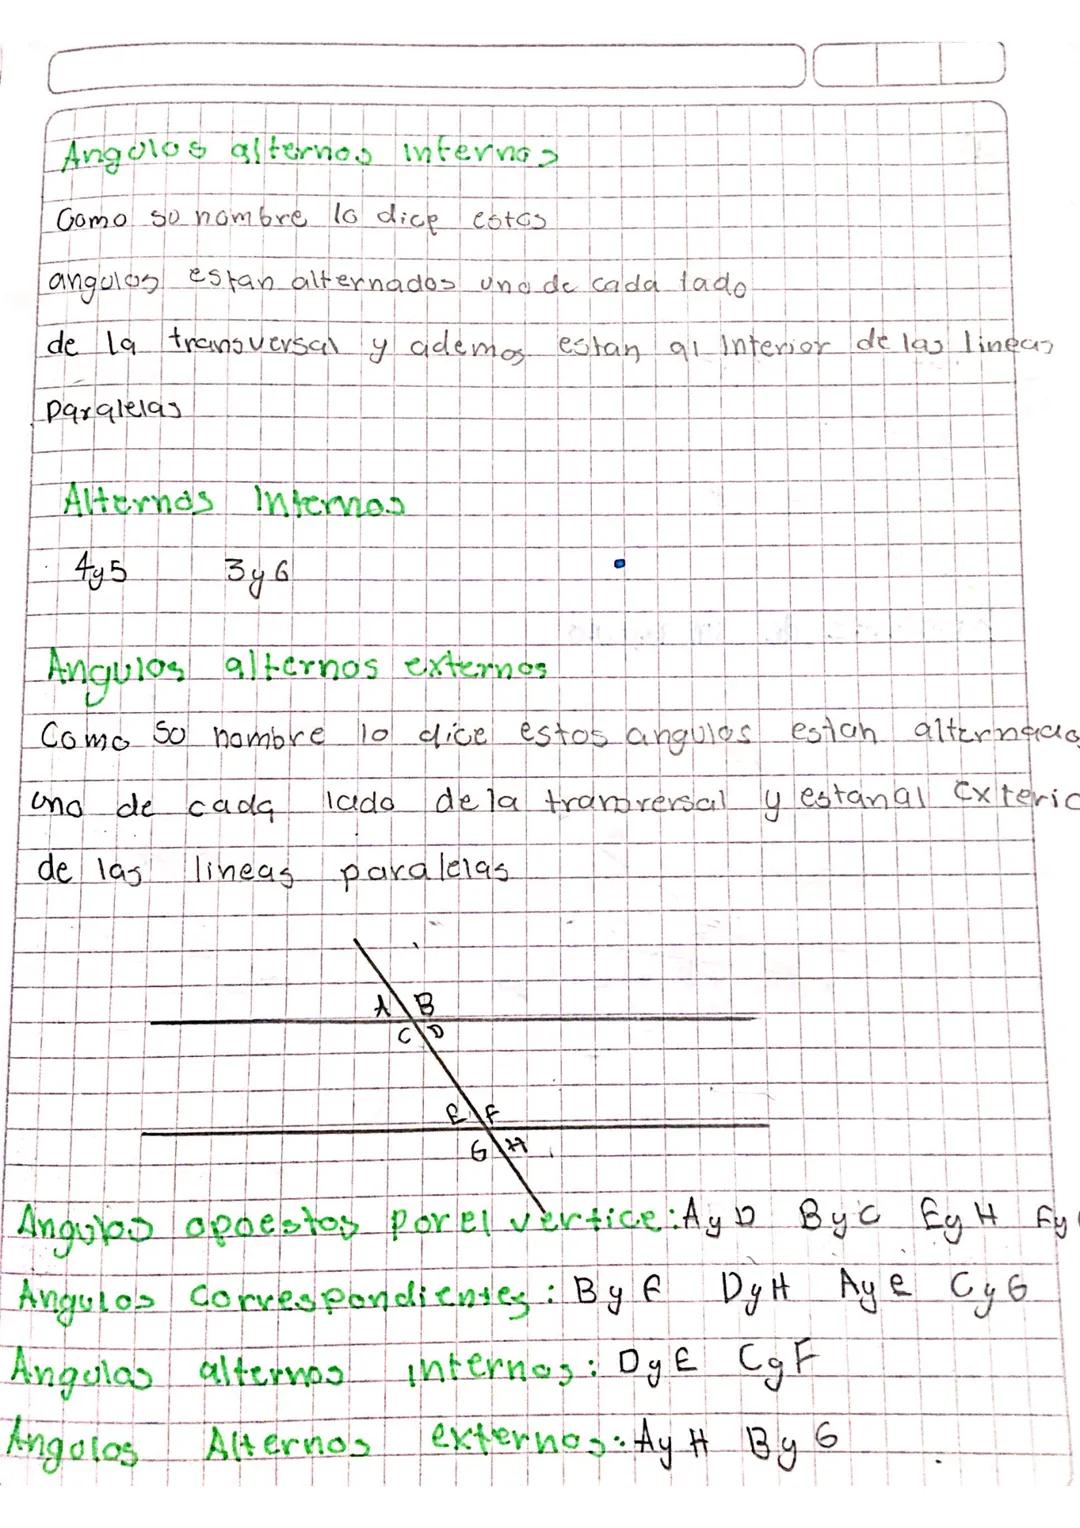 Angulos alternos internos
Como su nombre lo dice estos
angulos estan alternados uno de cada lado
de la transversal y ademas estan al interior de las lineas
paralelas
Alternos Internos
4y5 3y6
Angulos alternos externos
Como su nombre lo dice estos angulos estan alternados
uno de cada lado de la transversal y estan al exterio
de las lineas paralelas
A B
C D
E F
G H
Angulos opuestos por el vertice: A y D B y C E y H F y
Angulos correspondientes: B y F D y H A y E C y G
Angulos alternos internos: D y E C y F
Angulos Alternos externos: A y H B y G